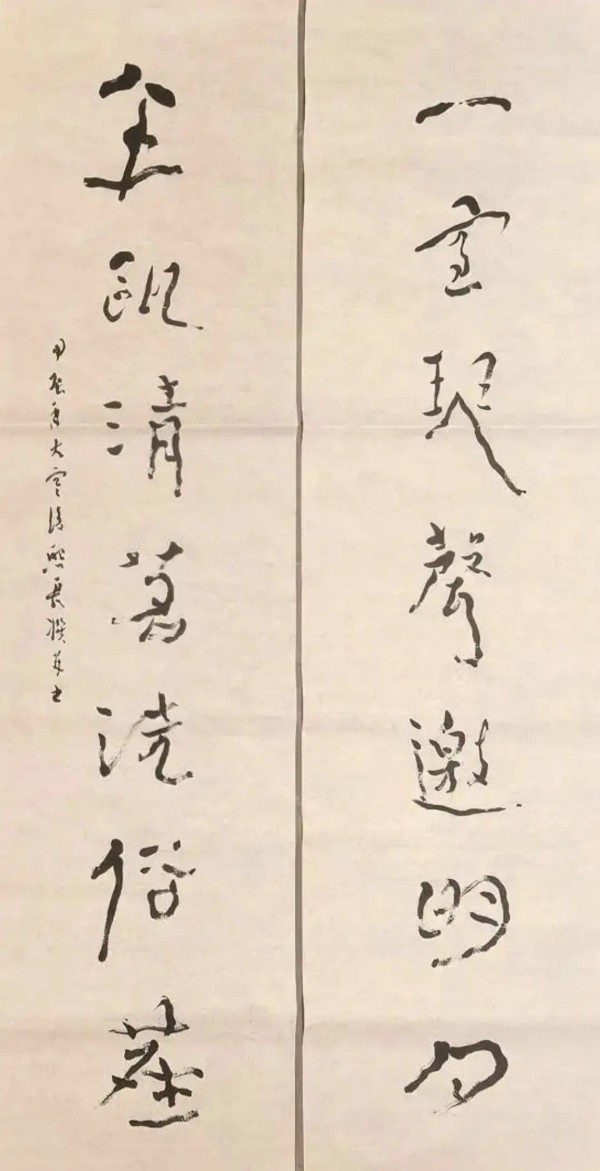 一室琴聲邀明月
金甌清茗洗俗塵
甲辰年大寒後熙長撰並書